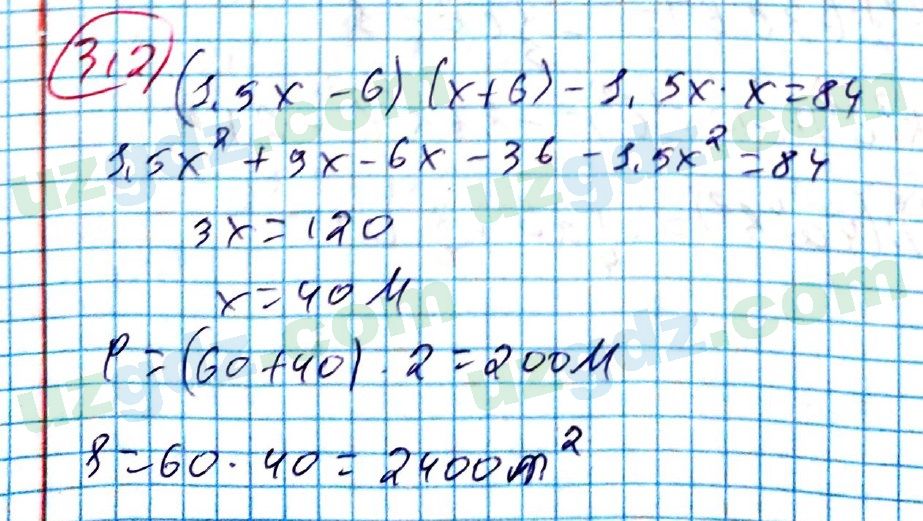 312
(1,5x - 6)(x+6) - 1,5x · x = 84
1,5x² + 9x - 6x - 36 - 1,5x² = 84
3x = 120
x = 40 м
P = (60+40) · 2 = 200 м
S = 60 · 40 = 2400 m²
uzgdz.com
uzgdz.com
uzgdz.com
uzgdz.com
uzgdz.com